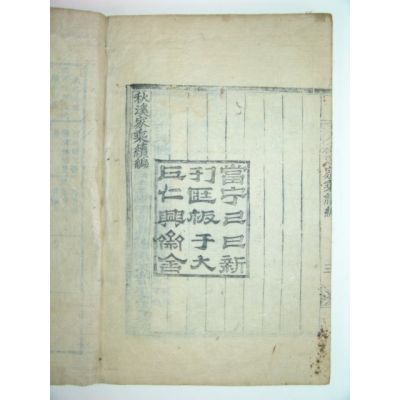 家乘續編
三
當宁己巳新
刊板于大
丘仁興舍
秋溪家乘續編